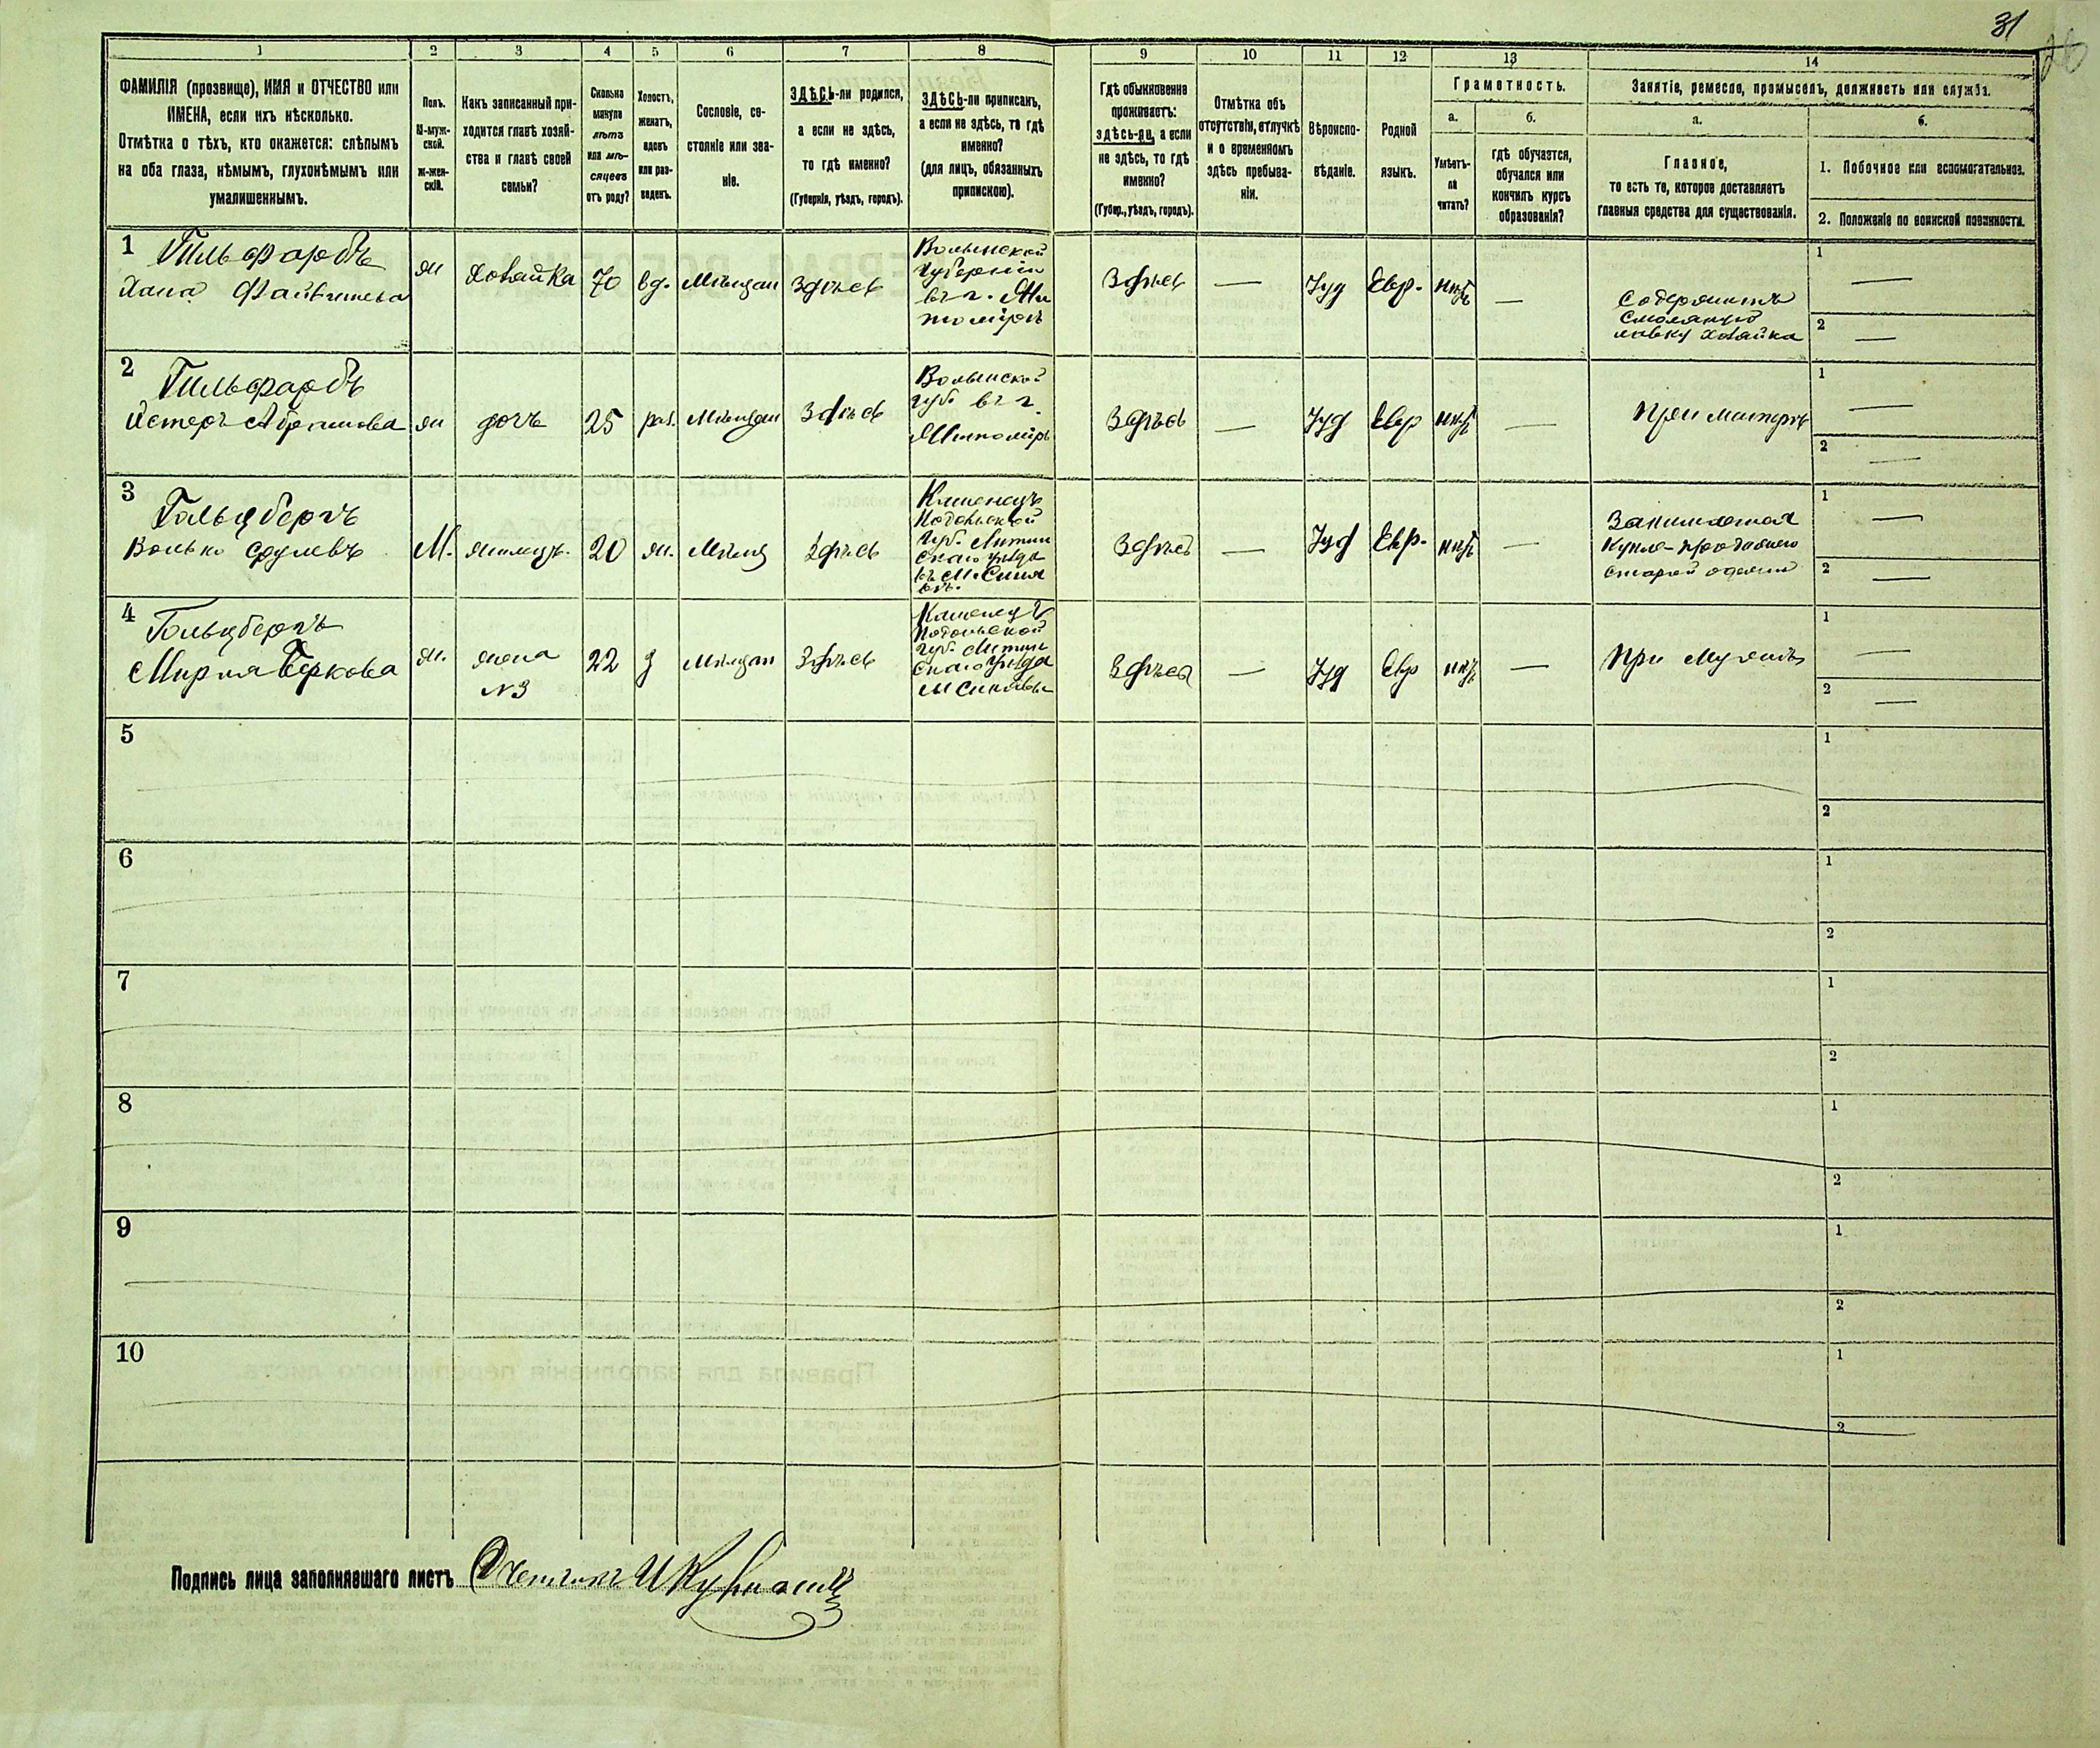 31
1 2 3 4 5 6 7 8 9 10 11 12 13 14
ФАМИЛІЯ (прозвище), ИМЯ и ОТЧЕСТВО или
ИМЕНА, если ихъ нѣсколько.
Отмѣтка о тѣхъ, кто окажется: слѣпымъ
на оба глаза, нѣмымъ, глухонѣмымъ или
умалишеннымъ.
Полъ.
М-муж-
ской.
ж-жен-
скій.
Какъ записанный при-
ходится главѣ хозяй-
ства и главѣ своей
семьи?
Сколько
минуло
лѣтъ
или мѣ-
сяцевъ
отъ роду?
Холостъ,
женатъ,
вдовъ
или раз-
веденъ.
Сословіе, со-
стояніе или зва-
ніе.
ЗДѢСЬ-ли родился,
а если не здѣсь,
то гдѣ именно?
(Губернія, уѣздъ, городъ).
ЗДѢСЬ-ли приписанъ,
а если не здѣсь, то гдѣ
именно?
(для лицъ, обязанныхъ
припискою).
Гдѣ обыкновенно
проживаетъ:
здѣсь-ли, а если
не здѣсь, то гдѣ
именно?
(Губер., уѣздъ, городъ).
Отмѣтка объ
отсутствіи, отлучкѣ
и о временномъ
здѣсь пребыва-
ніи.
Вѣроиспо-
вѣданіе.
Родной
языкъ.
Грамотность.
а.
Умѣетъ-
ли
читать?
б.
гдѣ обучается,
обучался или
кончилъ курсъ
образованія?
Занятіе, ремесло, промыселъ, должность или служба.
а.
Главное,
то есть то, которое доставляетъ
главныя средства для существованія.
б.
1. Побочное или вспомогательное.
2. Положеніе по воинской повинности.
1 Гильфарбъ
Хана Файвишева
ж
хозяйка
70
вд.
Мѣщан
Здѣсь
Волынской
губерніи
въ г. Жи
томірѣ
Здѣсь
—
Іуд
Евр.
нѣтъ
—
Содержитъ
смоляную
лавку хозяйка
1 —
2 —
2 Гильфарбъ
Естеръ Абрамова
ж
дочь
25
раз.
Мѣщан
Здѣсь
Волынской
губ въ г.
Житомірѣ
Здѣсь
—
Іуд
Евр
нѣтъ
—
при матерѣ
1 —
2 —
3 Гольцбергъ
Волько Срулевъ
М.
жилецъ.
20
ж.
Мѣщ
Здѣсь
Каменецъ
Подольской
губ. Литин
скаго уѣзда
въ М. Синя
вѣ.
Здѣсь
—
Іуд
Евр.
нѣтъ
—
Занимается
Купле-продажею
старой одежи
1 —
2 —
4 Гольцбергъ
Мирля Беркова
ж.
жена
№3
22
з
Мѣщан
Здѣсь
Каменецъ
Подольской
губ. Литин
скаго уѣзда
М Синявы
Здѣсь
—
Іуд
Евр
нѣтъ
—
При Мужѣ
1 —
2 —
5
1
2
6
1
2
7
1
2
8
1
2
9
1
2
10
1
2
Подпись лица заполнявшаго листъ